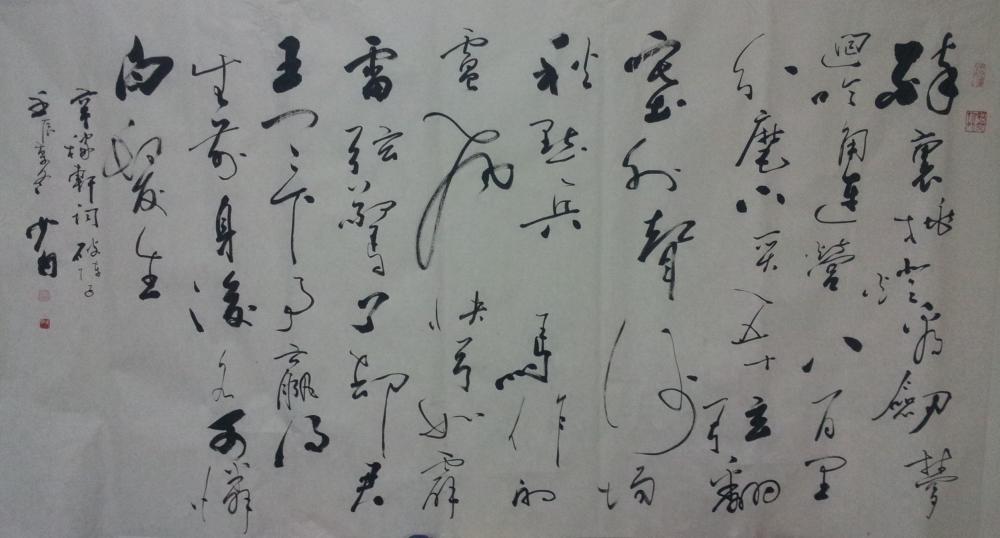 醉裏挑燈看劍夢
迴吹角連營八百里
分麾下炙五十弦翻
塞外聲沙場
秋點兵馬作的
盧飛快弓如霹
靂弦驚了卻君
王天下事贏得
生前身後名可憐
白髮生
辛稼軒詞破陣子
壬辰